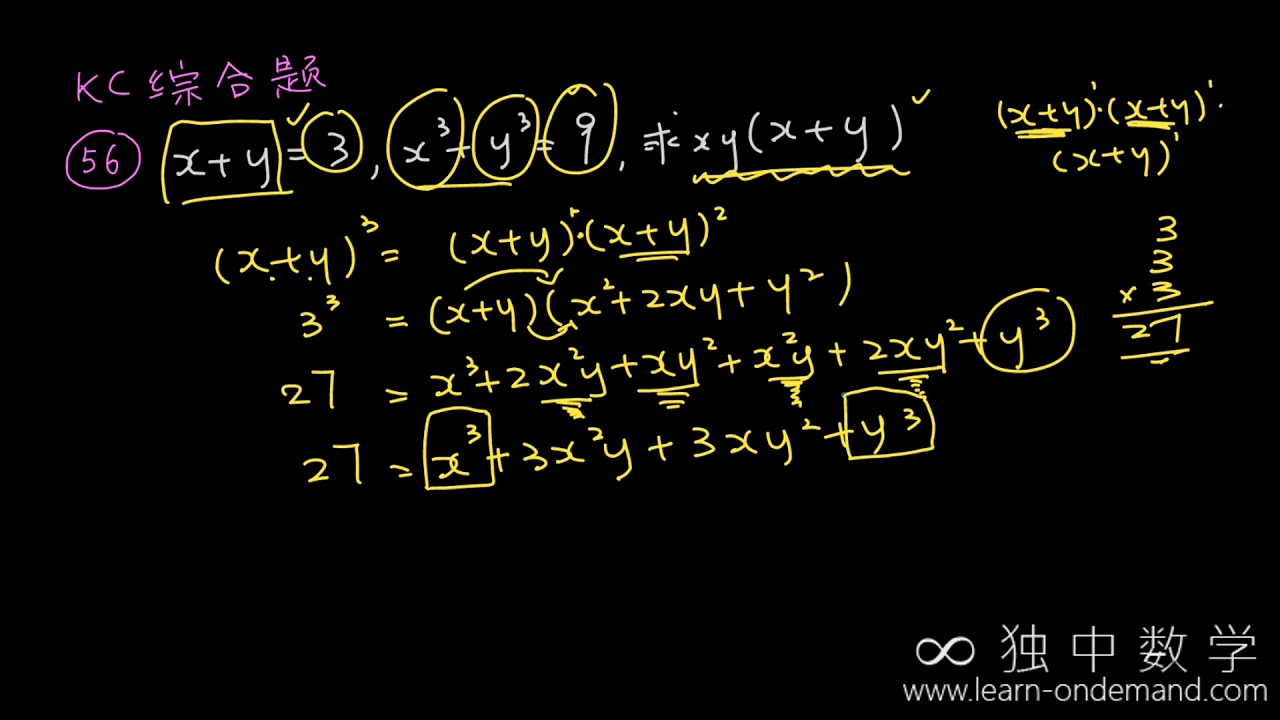 KC 综合题
56 x+y=3, x³+y³=9, 求 xy(x+y)
(x+y)¹·(x+y)¹·
(x+y)¹
(x+y)³ = (x+y)¹·(x+y)²
3³ = (x+y)(x²+2xy+y²)
27 = x³+2x²y+xy²+x²y+2xy²+y³
27 = x³+3x²y+3xy²+y³
3
3
× 3
27
∞ 独中数学
www.learn-ondemand.com